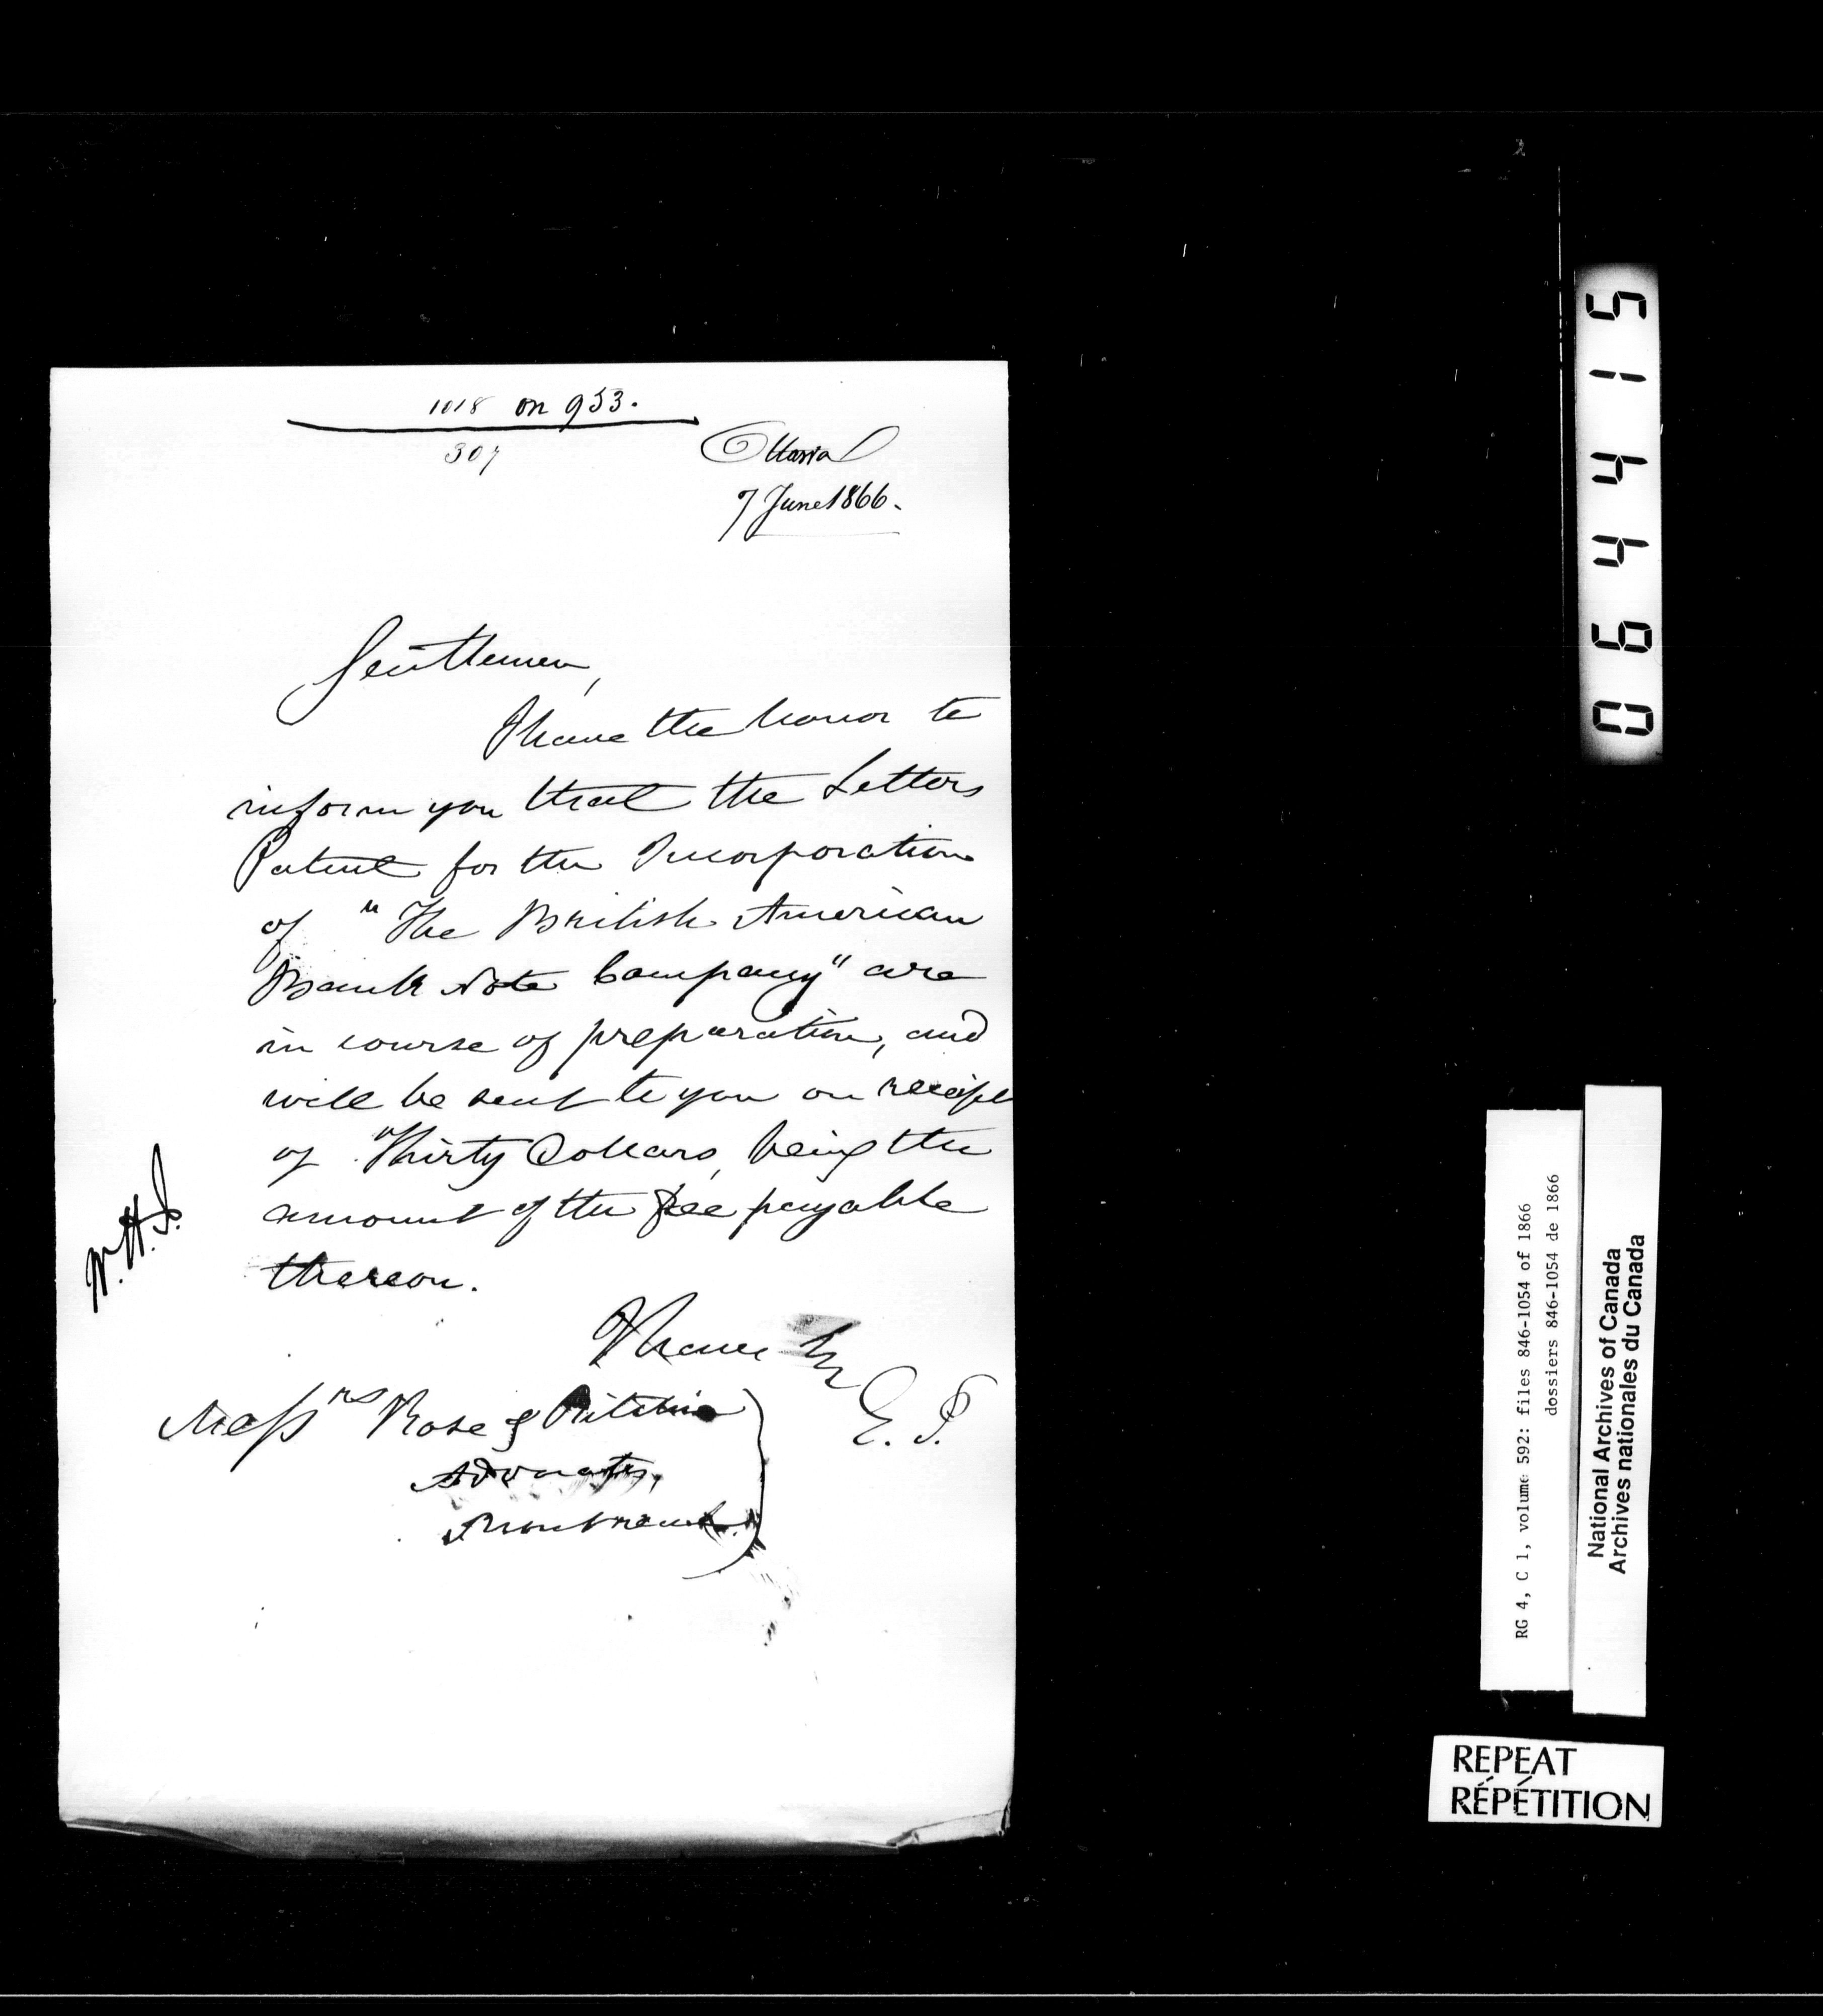 1018 on 953.
307
Ottawa
7 June 1866.
Gentlemen,
I have the honor to
inform you that the Letters
Patent for the Incorporation
of "The British American
Bank Note Company" are
in course of preparation, and
will be sent to you on receipt
of Thirty Dollars, being the
amount of the fee payable
thereon.
I have &c
E. P.
W.H.J.
Messrs Rose & Ritchie
Advocates,
Montreal.
064415
RG 4, C 1, volume 592: files 846-1054 of 1866
dossiers 846-1054 de 1866
National Archives of Canada
Archives nationales du Canada
REPEAT
RÉPÉTITION